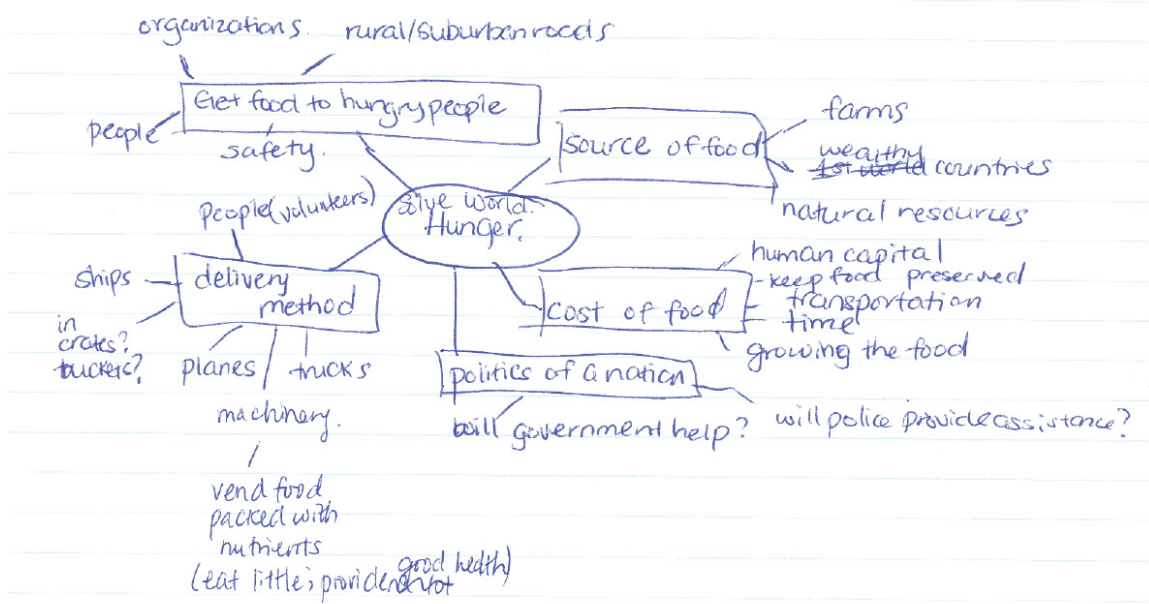 organizations. rural/suburban roads
Get food to hungry people
people
safety.
source of food
farms
wealthy
1st world countries
natural resources
People (volunteers)
Solve World
Hunger.
ships
delivery
method
in
crates?
buckets?
planes
trucks
machinery.
vend food
packed with
nutrients
(eat little; provide good health)
cost of food
human capital
-keep food preserved
transportation
time
growing the food
politics of a nation
will government help?
will police provide assistance?